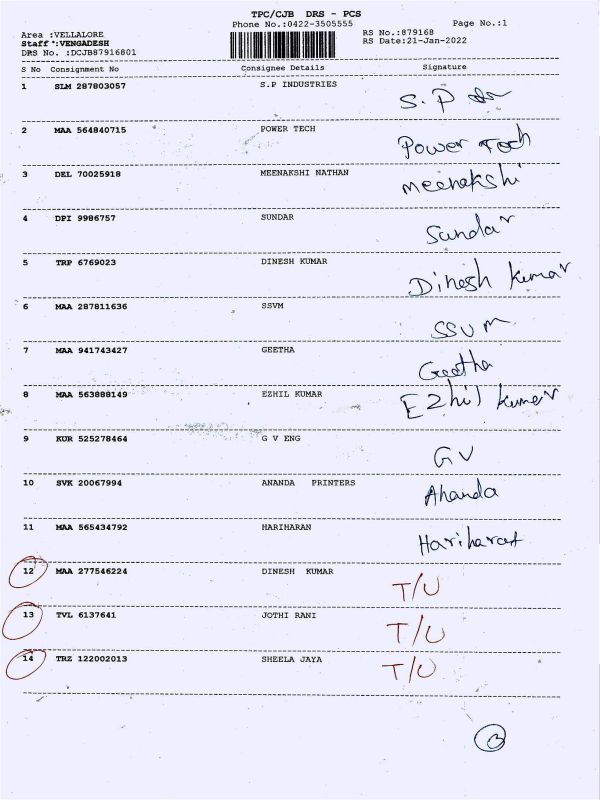 TPC/CJB DRS - PCS
Phone No.:0422-3505555
Page No.:1
Area :VELLALORE
RS No.:879168
Staff :VENGADESH
RS Date:21-Jan-2022
DRS No. :DCJB87916801
S No Consignment No Consignee Details Signature
1 SLM 287803057 S.P INDUSTRIES S.P
2 MAA 564840715 POWER TECH Power Tech
3 DEL 70025918 MEENAKSHI NATHAN meenakshi
4 DPI 9986757 SUNDAR Sundar
5 TRP 6769023 DINESH KUMAR Dinesh kumar
6 MAA 287811636 SSVM SSVM
7 MAA 941743427 GEETHA Geetha
8 MAA 563888149 EZHIL KUMAR Ezhil kumar
9 KUR 525278464 G V ENG GV
10 SVK 20067994 ANANDA PRINTERS Ananda
11 MAA 565434792 HARIHARAN Hariharan
12 MAA 277546224 DINESH KUMAR T/U
13 TVL 6137641 JOTHI RANI T/U
14 TRZ 122002013 SHEELA JAYA T/U